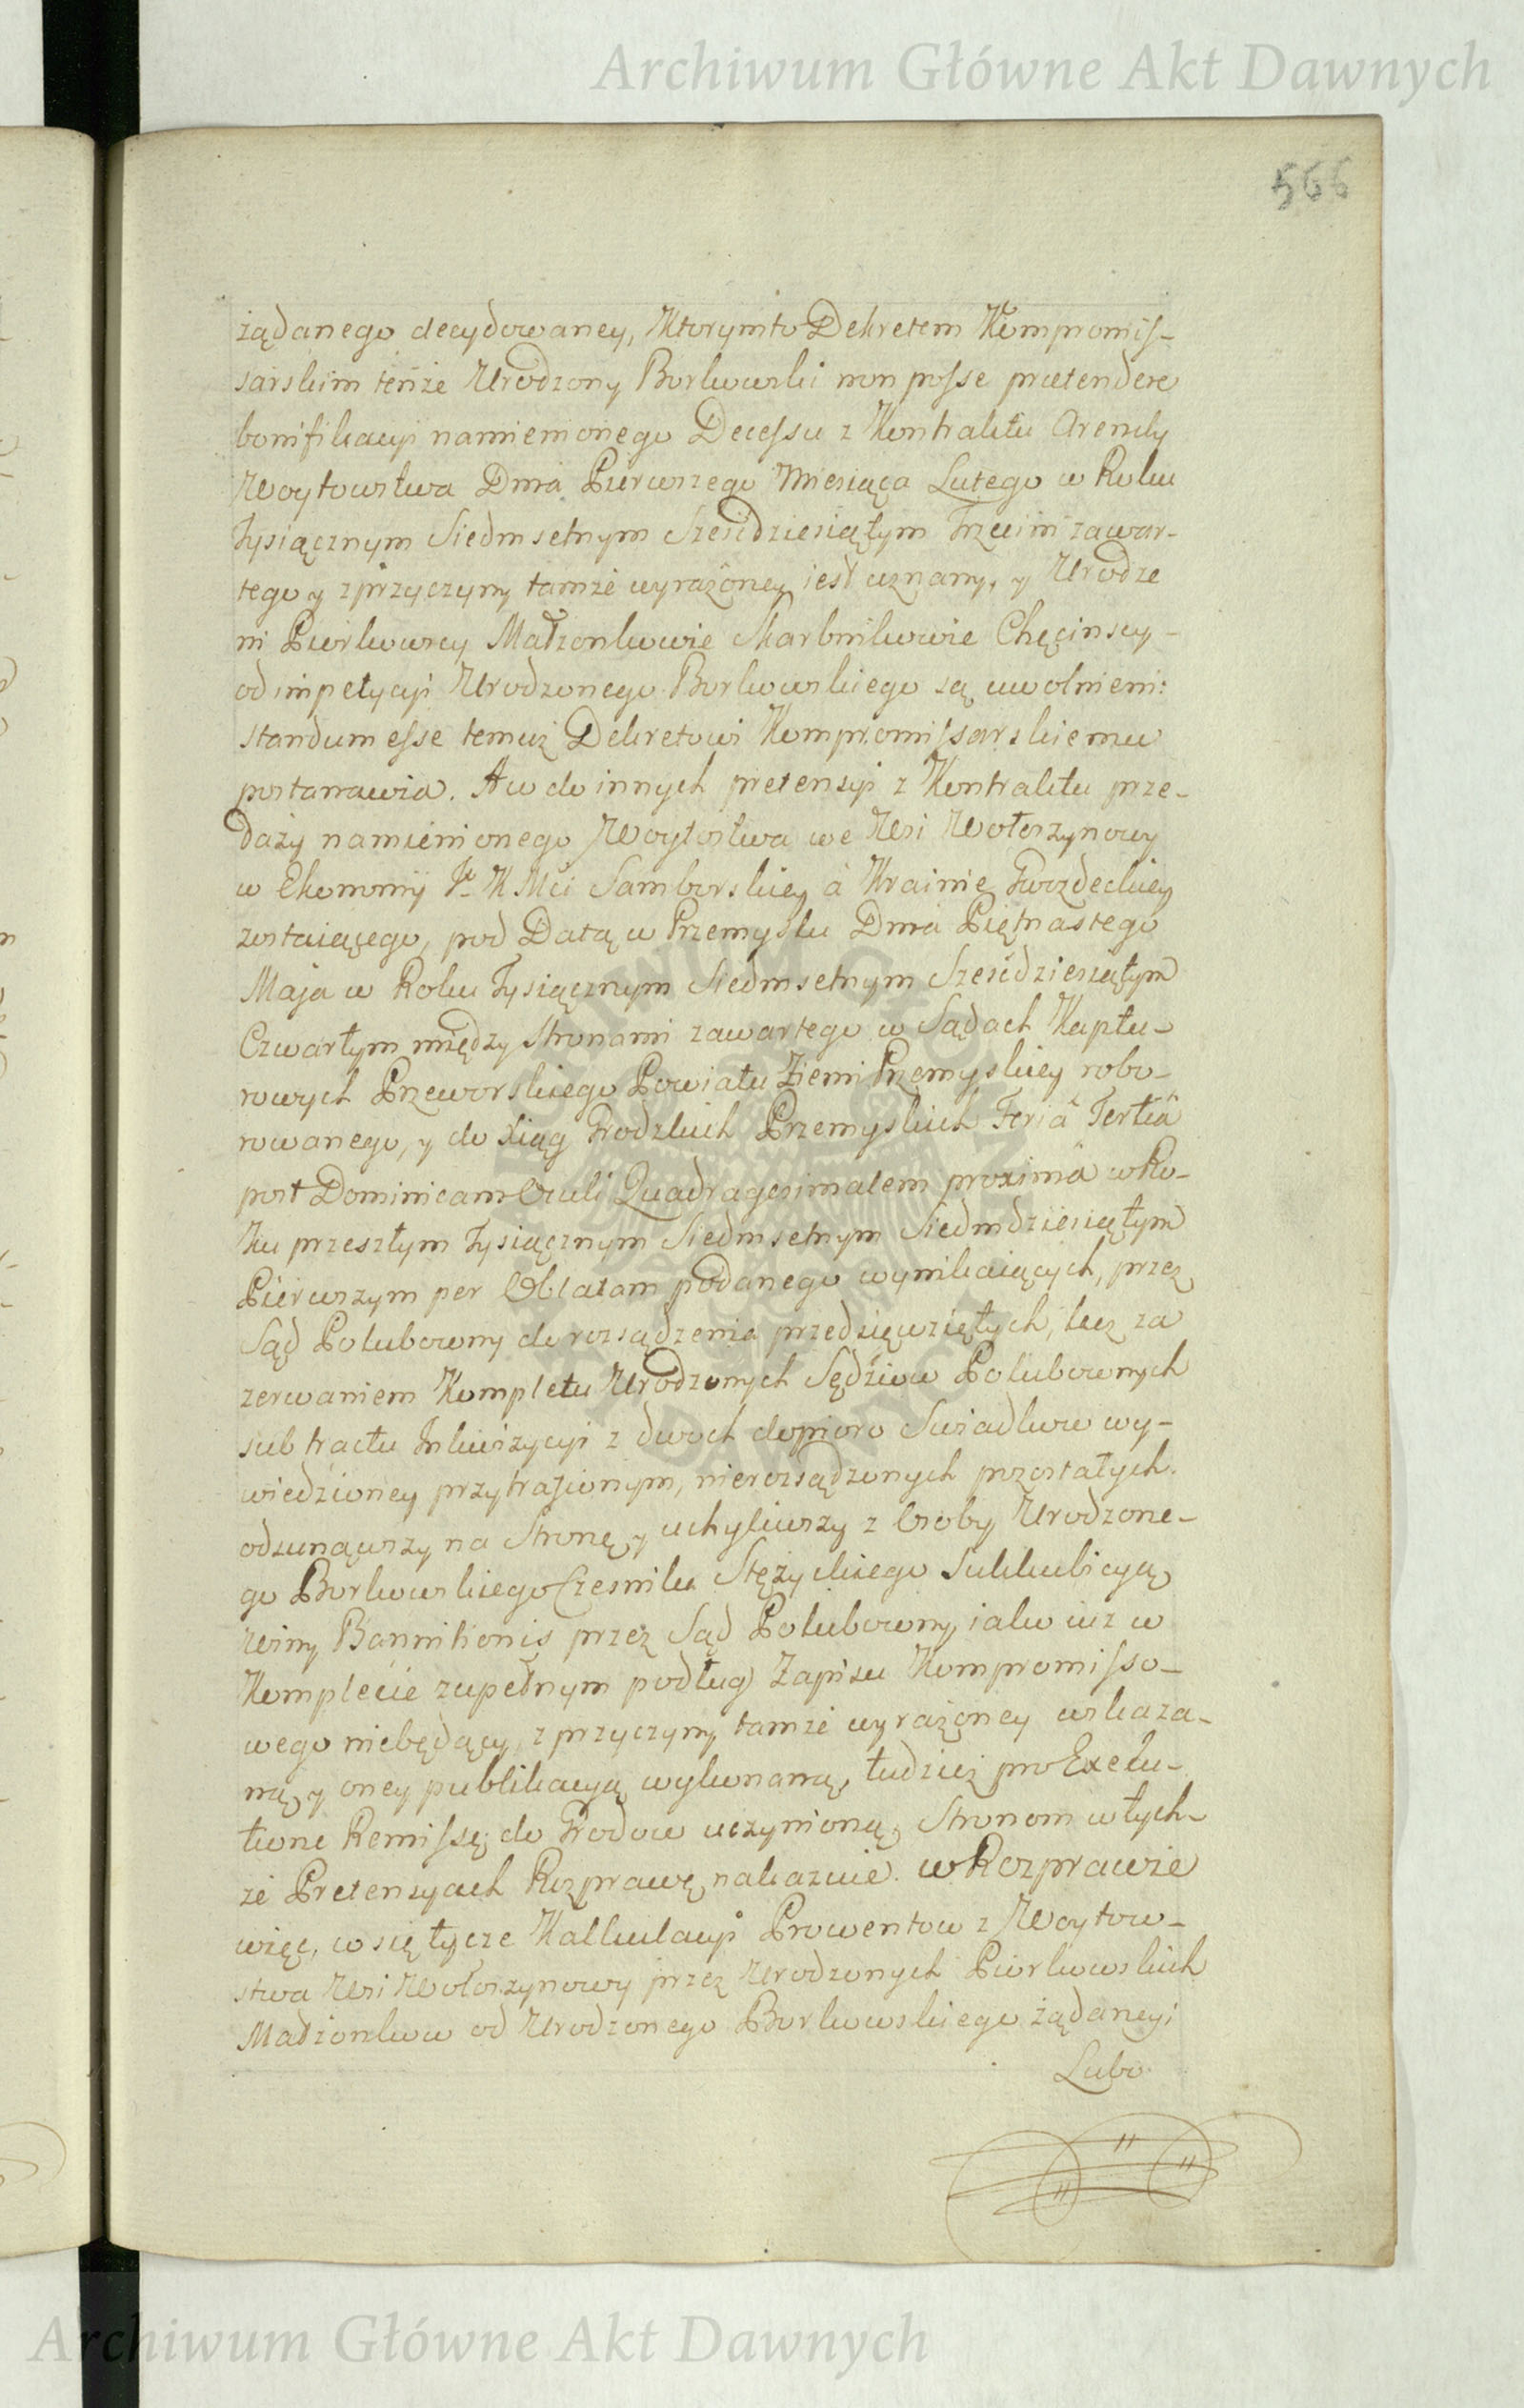 Archiwum Główne Akt Dawnych
566
żądanego decydowaney, Ktorymto Dekretem Kompromis-
sarskim tenże Urodzony Borkowski non posse praetendere
bonifikacyi namienionego Decessu z Kontraktu Arendy
Woytowstwa Dnia Pierwszego Miesiąca Lutego w Roku
Tysiącznym Siedmsetnym Sześćdziesiątym Trzecim zawar-
tego y z przyczyny tamże wyrażoney iest uznany, y Urodze
ni Piorkowscy Małżonkowie Skarbnikowie Chęcinscy -
od impetycyi Urodzonego Borkowskiego są uwolnieni:
standum esse temuż Dekretowi Kompromissarskiemu
postanawia. A co do innych pretensyi z Kontraktu prze-
daży namienionego Woytostwa we Wsi Wołoszynowy
w Ekonomij J. K Mci Samborskiey à Krainie Gwozdeckiey
zostaiącego, pod Datą w Przemyslu Dnia Piętnastego
Maja w Roku Tysiącznym Siedmsetnym Sześćdziesiątym
Czwartym między Stronami zawartego w Sądach Kaptu-
rowych Przeworskiego Powiatu Ziemi Przemyskiey robo-
rowanego, y do Xiąg Grodzkich Przemyskich Feriâ Tertiâ
post Dominicam Oculi Quadragesimalem proximâ w Ro-
ku przeszłym Tysiącznym Siedmsetnym Siedmdziesiątym
Pierwszym per Oblatam podanego wynikaiących, przez
Sąd Polubowny do rozsądzenia przedsięwziętych, lecz za
zerwaniem Kompletu Urodzonych Sędziow Polubownych
sub tractu Inkwizycyi z dwoch dopioro Swiadkow wy-
wiedzioney przytrafionym, nierozsądzonych pozostałych.
odsunąwszy na Stronę y uchyliwszy z Osoby Urodzone-
go Borkowskiego Czesnika Stężyckiego Sukkubicyą
Winy Bannitionis przez Sąd Polubowny iako iuz w
Komplecie zupełnym podług Zapisu Kompromisso-
wego niebędący, z przyczyny tamże wyrażoney wskaza-
ną, y oney publikacyą wykonaną, tudzież pro Exeku-
tione Remissę do Grodow uczynioną, Stronom w tych-
że Pretensyach Rozprawę nakazuie. w Rozprawie
więc, co się tycze Kalkulacyi Prowentow z Woytow-
stwa Wsi Wołoszynowy przez Urodzonych Piorkowskich
Małżonkow od Urodzonego Borkowskiego żądaney;
Lubo
Archiwum Główne Akt Dawnych